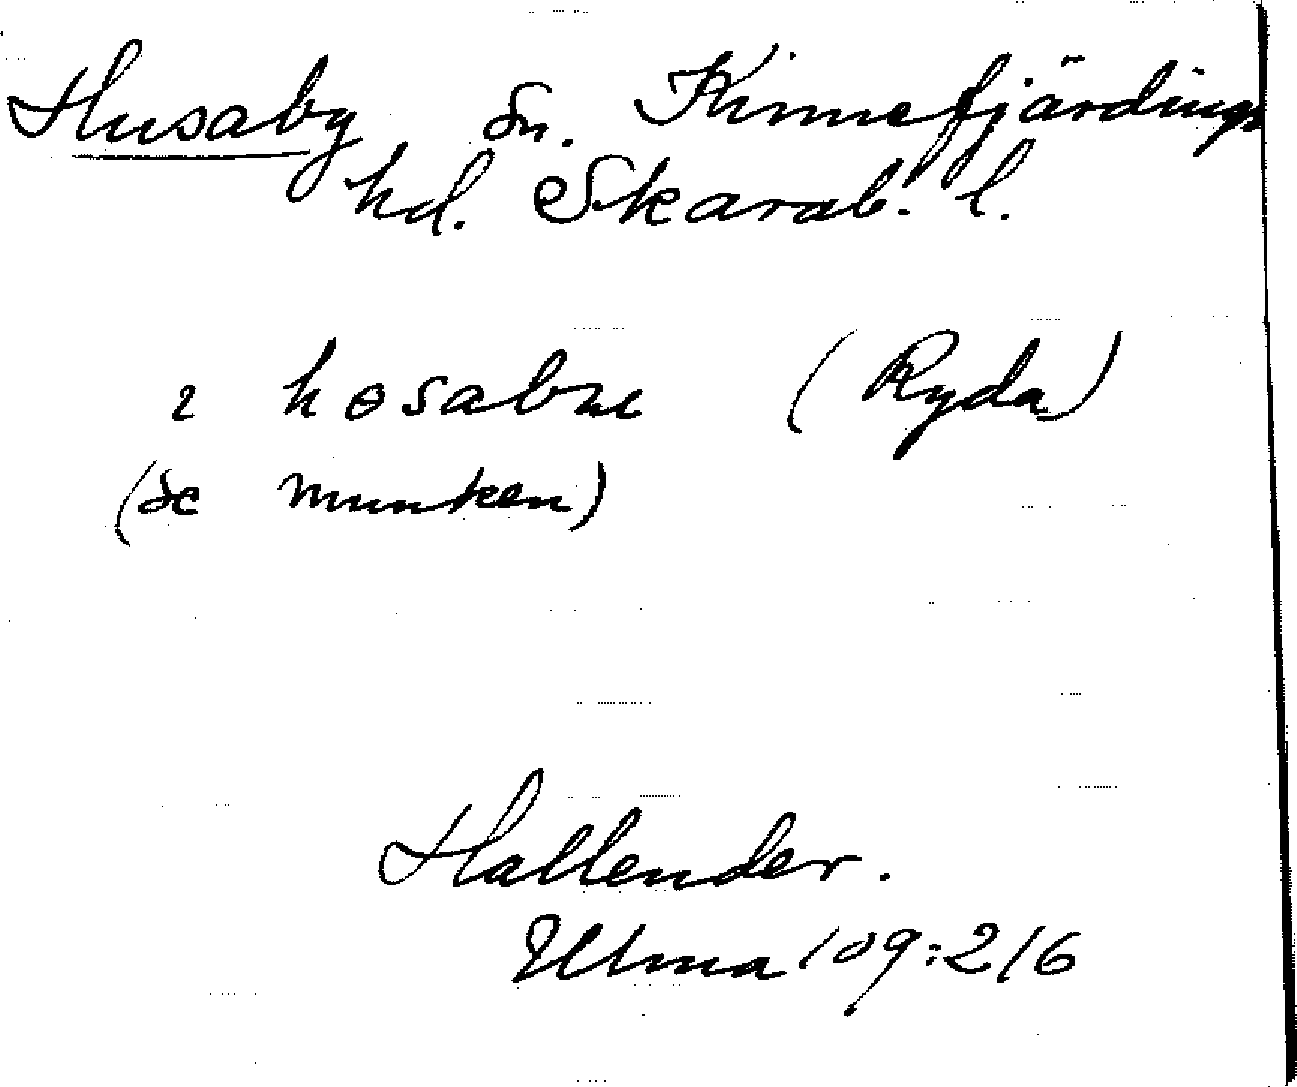 Husaby sn. Kinnefjärdings
hd. Skarab. l.
ı hɵsabııı (Ryda)
(se munken)
Hallender.
Ulma 109:216